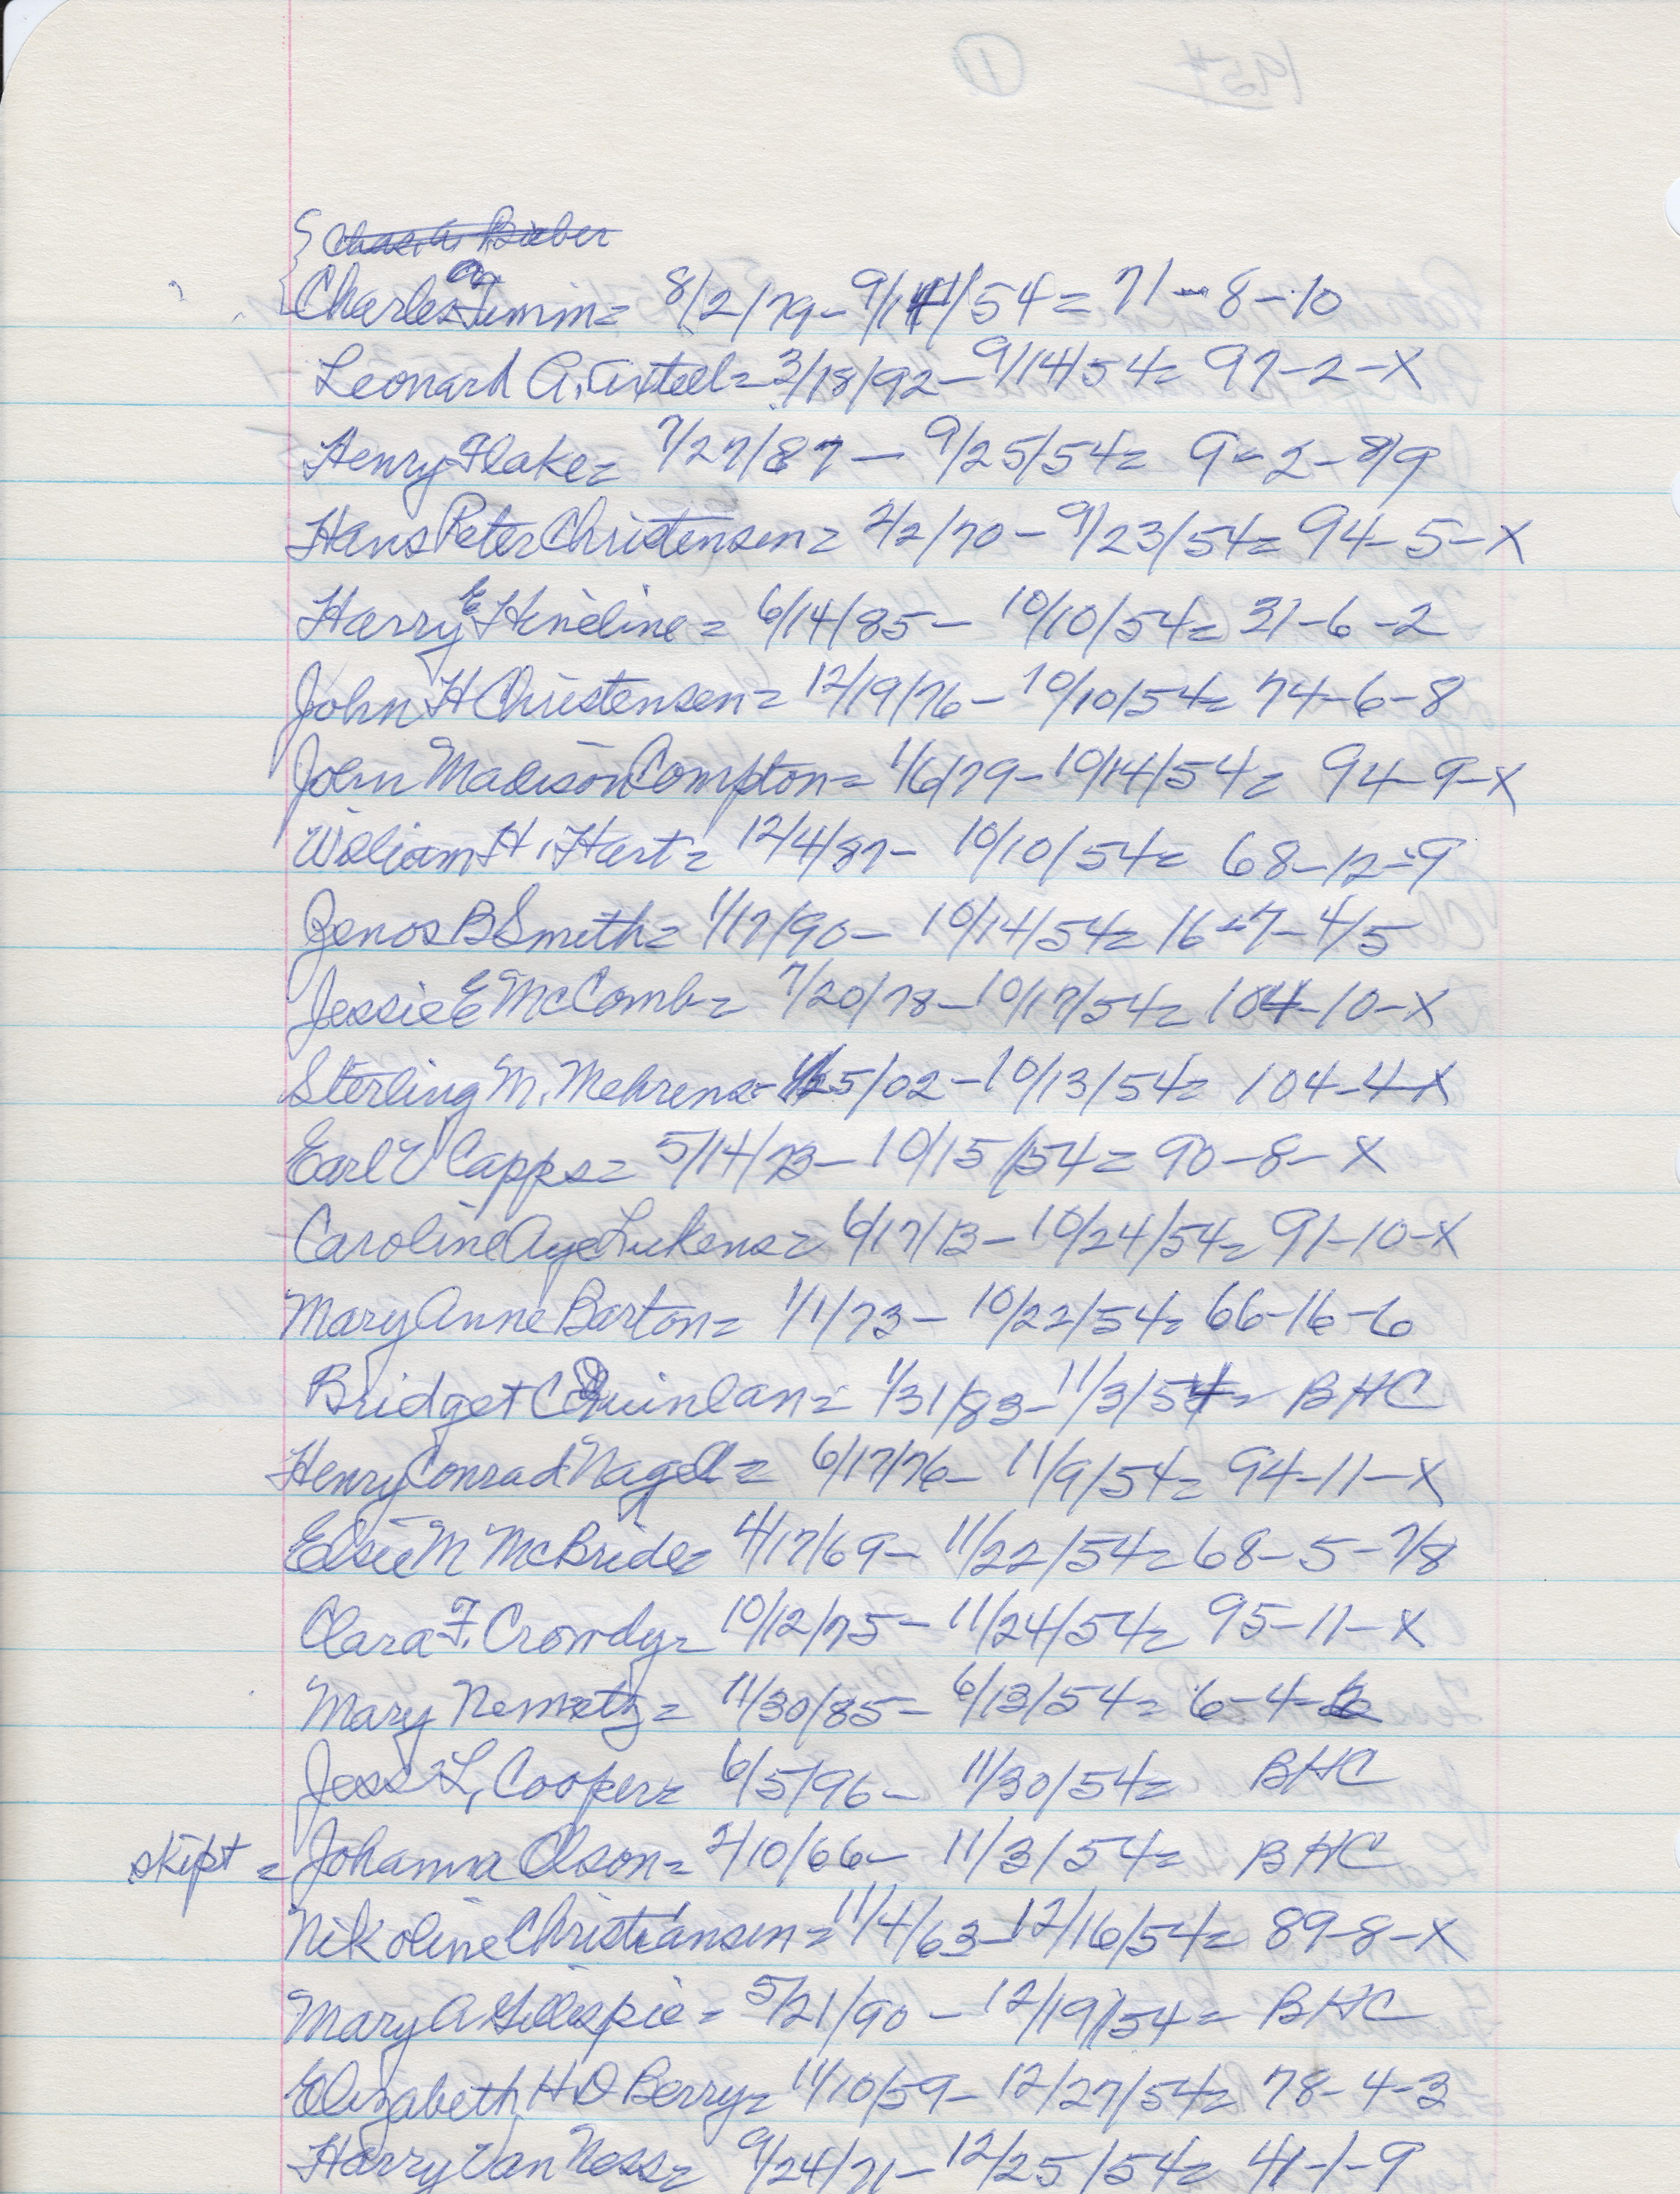 Charles A Timm = 8/2/79 - 9/14/54 = 71 - 8 - 10
Leonard A. Axtell = 3/18/92 - 9/14/54 = 97-2-X
Henry Flake = 7/27/87 - 9/25/54 = 9-2-8/9
Hans Peter Christensen = 2/2/70 - 9/23/54 = 94-5-X
Harry E Hineline = 6/14/85 - 10/10/54 = 31-6-2
John H Christensen = 12/19/76 - 10/10/54 = 74-6-8
John Madison Compton = 1/6/79 - 10/14/54 = 94-9-X
William H. Hart = 12/4/87 - 10/10/54 = 68-12-9
Zenos B Smith = 1/17/90 - 10/14/54 = 16-7-4/5
Jessie E McComb = 7/20/78 - 10/17/54 = 104-10-X
Sterling M. Mehrens = 1/25/02 - 10/13/54 = 104-4-X
Earl V Capps = 5/14/73 - 10/15/54 = 90-8-X
Caroline Aye Lukens = 6/17/13 - 10/24/54 = 91-10-X
Mary Anne Barton = 1/1/73 - 10/22/54 = 66-16-6
Bridget C Quinlan = 1/31/83 - 11/3/54 = BHC
Henry Conrad Nagel = 6/17/76 - 11/9/54 = 94-11-X
Elsie M McBride = 4/17/69 - 11/22/54 = 68-5-7/8
Clara F. Crowdy = 10/12/75 - 11/24/54 = 95-11-X
Mary Nemetz = 11/30/85 - 6/13/54 = 6-4-
Jess L. Cooper = 6/5/96 - 11/30/54 = BHC
skipt = Johanna Olson = 2/10/66 - 11/3/54 = BHC
Nikoline Christiansen = 11/4/63 - 12/16/54 = 89-8-X
Mary A Gillespie = 5/21/90 - 12/19/54 = BHC
Elizabeth H D Berry = 11/10/59 - 12/27/54 = 78-4-3
Harry Van Ness = 9/24/71 - 12/25/54 = 41-1-9